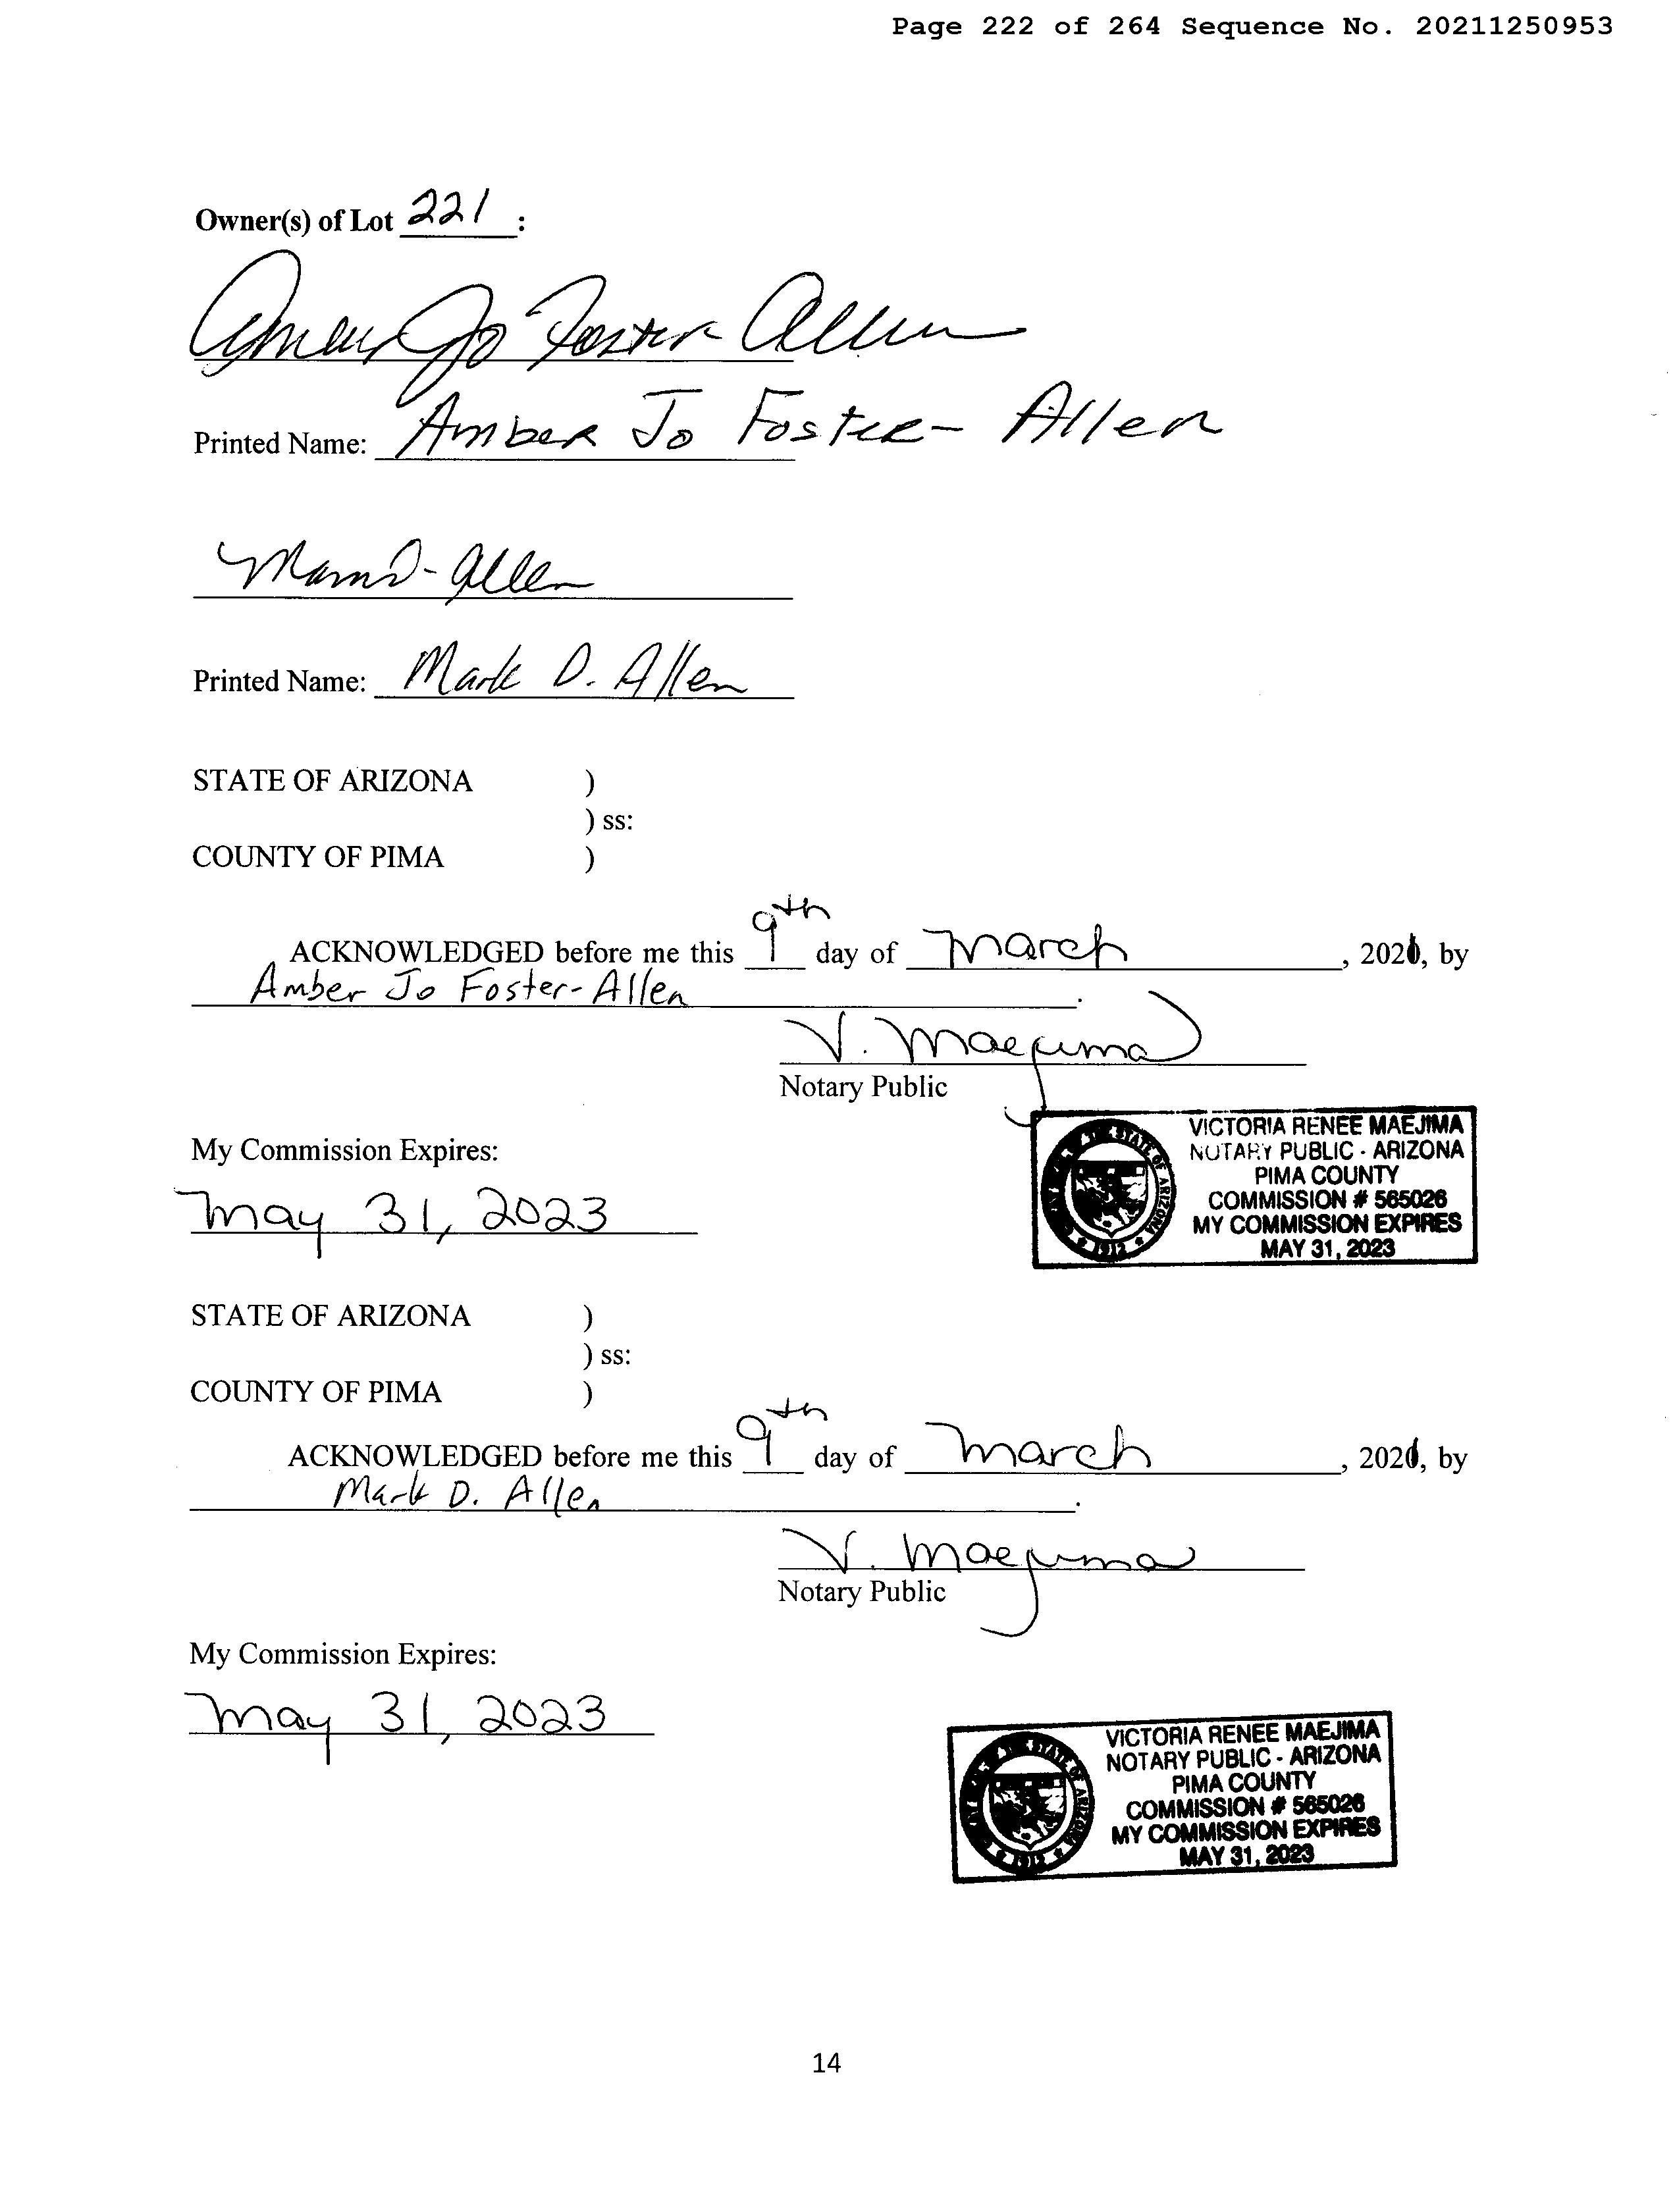 Page 222 of 264 Sequence No. 20211250953
Owner(s) of Lot 221 :
Amber Jo Foster Allen
Printed Name: Amber Jo Foster-Allen
Mark D. Allen
Printed Name: Mark D. Allen
STATE OF ARIZONA )
) ss:
COUNTY OF PIMA )
ACKNOWLEDGED before me this 9th day of March, 2021, by
Amber Jo Foster-Allen.
V. Maejima
Notary Public
My Commission Expires:
May 31, 2023
VICTORIA RENEE MAEJIMA
NOTARY PUBLIC - ARIZONA
PIMA COUNTY
COMMISSION # 565026
MY COMMISSION EXPIRES
MAY 31, 2023
STATE OF ARIZONA )
) ss:
COUNTY OF PIMA )
ACKNOWLEDGED before me this 9th day of March, 2021, by
Mark D. Allen.
V. Maejima
Notary Public
My Commission Expires:
May 31, 2023
VICTORIA RENEE MAEJIMA
NOTARY PUBLIC - ARIZONA
PIMA COUNTY
COMMISSION # 565026
MY COMMISSION EXPIRES
MAY 31, 2023
14